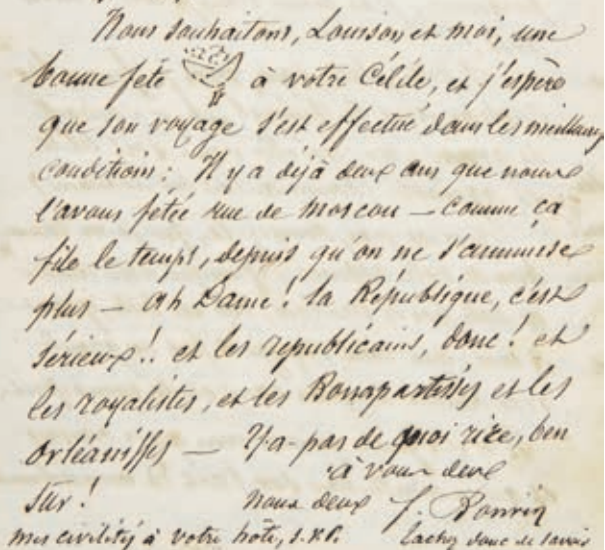 Nous souhaitons, Louison et moi, une
bonne fête à votre Cécile, et j'espère
que son voyage s'est effectué dans les meilleures
conditions : Il y a déjà deux ans que nous
l'avons fêtée rue de Moscou — comme ça
file le temps, depuis qu'on ne s'amuse
plus — Ah Dame ! la République, c'est
sérieux !! et les républicains, donc ! et
les royalistes, et les Bonapartistes et les
Orléanistes — Y-a-pas de quoi rire, ben
sûr !
à vous deux
nous deux F. Bonvin
mes civilités à votre hôte, s.v.p.
Tachez donc de savoir